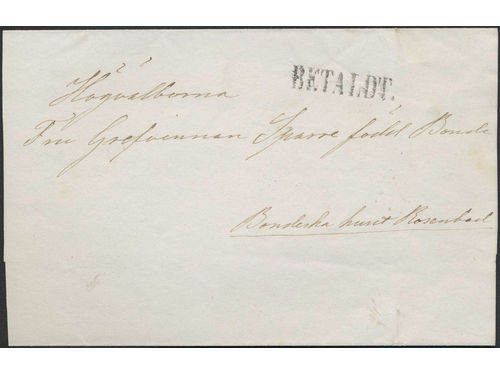 BETALDT.
Högvälborna
Fru Grefvinnan Sparre född Bonde
Bondeska huset Rosenbad